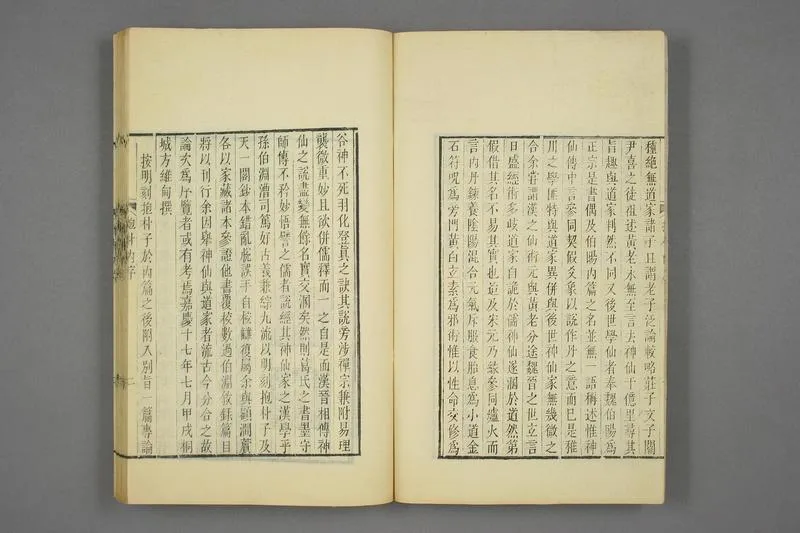 種絶無道家諸子且謂老子泛論較略莊子文子關
尹喜之徒祖述黃老永無至言去神仙千億里尋其
旨趣與道家判然不同又後世學仙者奉魏伯陽爲
正宗是書偶及伯陽内篇之名並無一語稱述惟神
仙傳中言參同契假爻象以說作丹之意而已是稚
川之學匪特與道家異併與後世神仙家無幾微之
合余嘗謂漢之仙術元與黃老分途魏晉之世玄言
日盛經術多歧道家自詭於儒神仙遂溷於道然第
假借其名不易其實也迨及宋元乃緣參同爐火而
言内丹鍊養陰陽混合元氣斥服食胎息爲小道金
石符咒爲旁門黃白玄素爲邪術惟以性命交修爲
谷神不死羽化登眞之訣其說旁涉禪宗兼附易理
襲微重妙且欲併儒釋而一之自是而漢晉相傳神
仙之說盡變無餘名實交溷矣然則葛氏之書墨守
師傳不矜妙悟譬之儒者說經其神仙家之漢學乎
孫伯淵漕司篤好古義兼綜九流以明刻抱朴子及
天一閣鈔本錯亂脫誤手自校讎復屬余與顧澗薲
各以家藏諸本參證他書覆校數過伯淵敘錄篇目
將以刊行余因舉神仙與道家者流古今分合之故
論次爲序覽者或有考焉嘉慶十七年七月甲戌桐
城方維甸撰
按明刻抱朴子於内篇之後闌入别旨一篇專論
抱朴内序
二